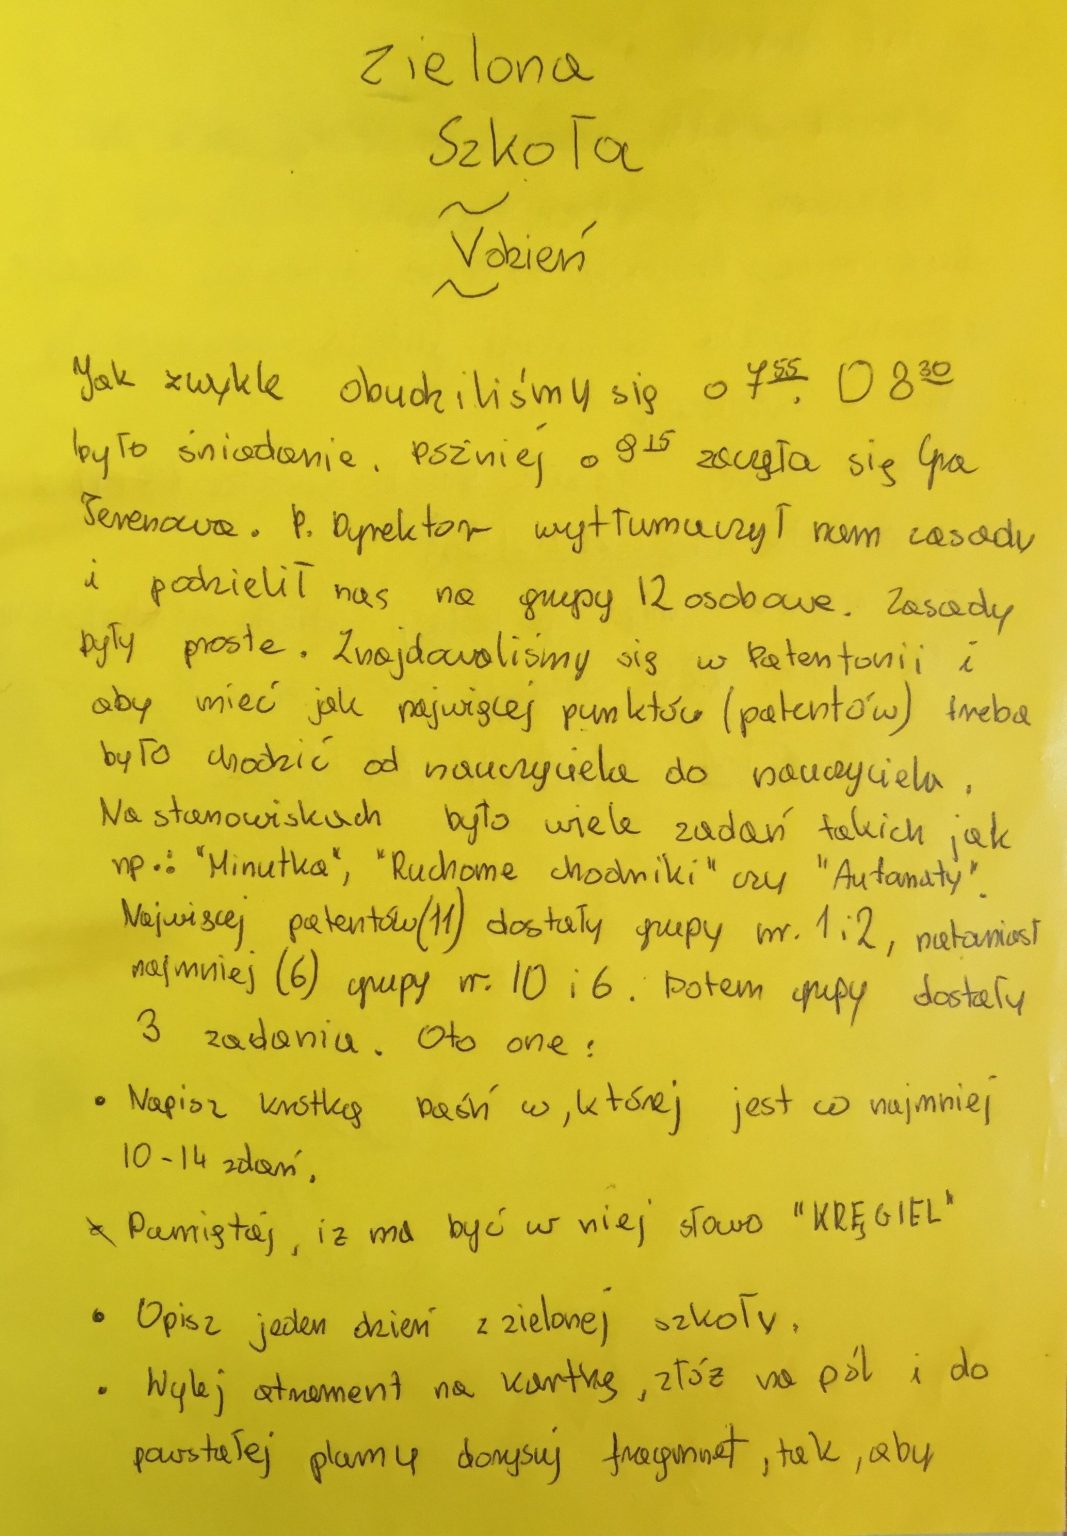 Zielona
Szkoła
V dzień
Jak zwykle obudziliśmy się o 7 55. O 8 30
było śniadanie. Później o 9 15 zaczęła się Gra
Terenowa. P. Dyrektor wytłumaczył nam zasady
i podzielił nas na grupy 12 osobowe. Zasady
były proste. Znajdowaliśmy się w Patentonii i
aby mieć jak najwięcej punktów (patentów) treba
było chodzić od nauczyciela do nauczyciela.
Na stanowiskach było wiele zadań takich jak
np.: "Minutka", "Ruchome chodniki" czy "Automaty".
Najwięcej patentów (11) dostały grupy nr. 1 i 2, natomiast
najmniej (6) grupy nr. 10 i 6. Potem grupy dostały
3 zadania. Oto one:
• Napisz krótką baśń w, której jest co najmniej
10-14 zdań.
* Pamiętaj, iż ma być w niej słowo "KRĘGIEL"
• Opisz jeden dzień z zielonej szkoły.
• Wylej atrament na kartkę, złóż na pół i do
powstałej plamy dorysuj fragmnet, tak, aby